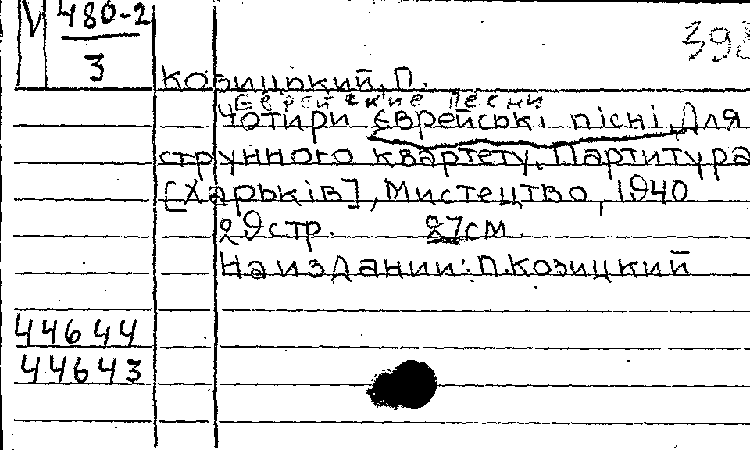 М 480-2
3
398
Козицький, П.
Еврейские песни
Чотири єврейські пісні. Для
струнного квартету. Партитура
[Харьків], Мистецтво, 1940
29 стр. 27 см.
На издании: П. Козицкий
44644
44643